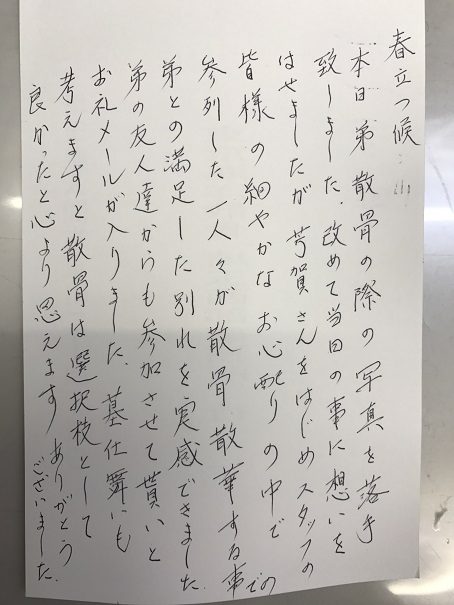 春立つ候…
本日 弟 散骨の際の写真を落手
致しました．改めて当日の事に想いを
はせましたが 芳賀さんをはじめスタッフの
皆様の細やかなお心配りの中での
参列した一人々が 散骨 散華する事で
弟との満足した別れを実感できました
弟の友人達からも参加させて貰いと
お礼メールが入りました．墓仕舞いも
考えますと散骨は選択枝として
良かったと心より思えます ありがとう
ございました．